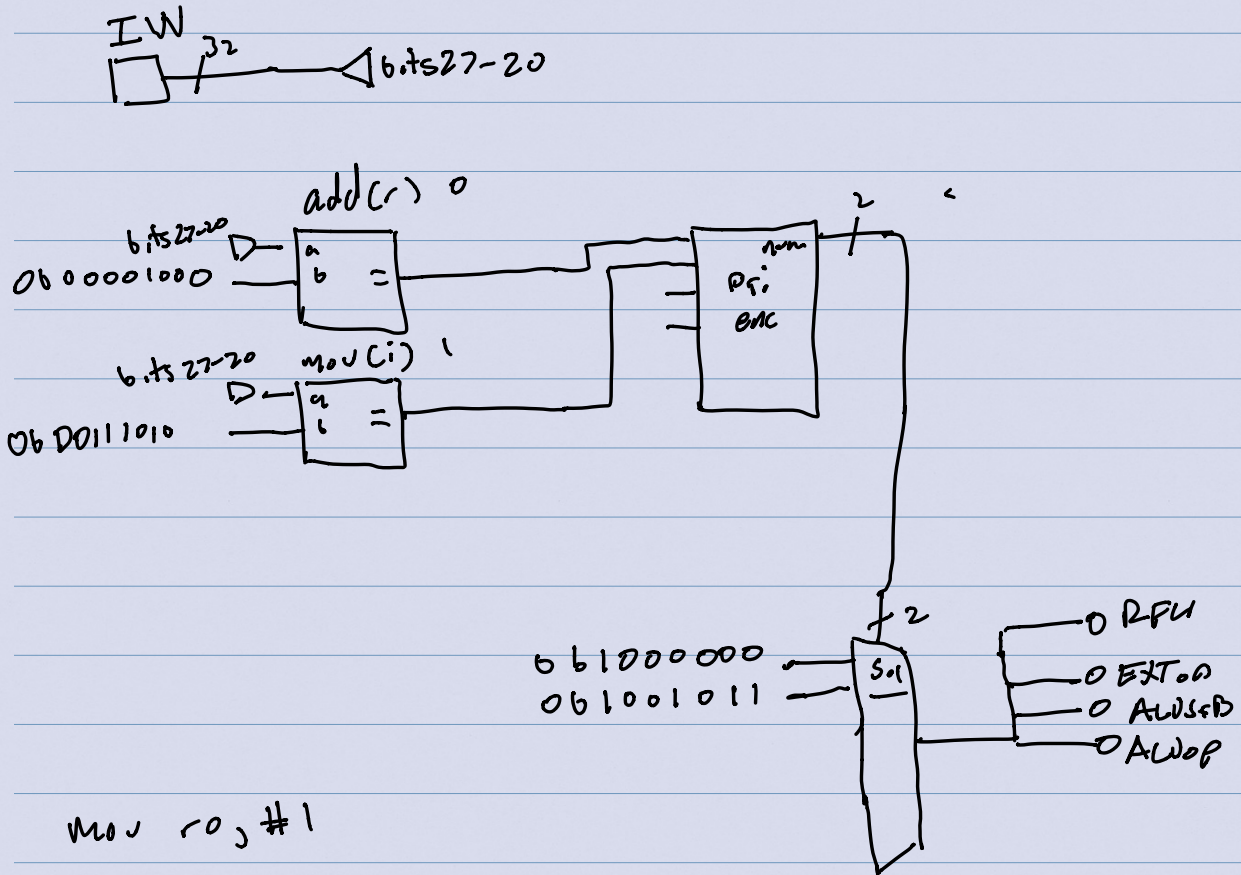 IW
32
bits27-20
add(r) 0
bits27-20
a
0b 00001000
b
=
mov(i) 1
bits27-20
a
0b 00111010
b
=
num
pri
enc
2
2
0b1000000
0b1001011
Sel
RFW
EXTop
ALUSrB
ALUop
mov r0, #1